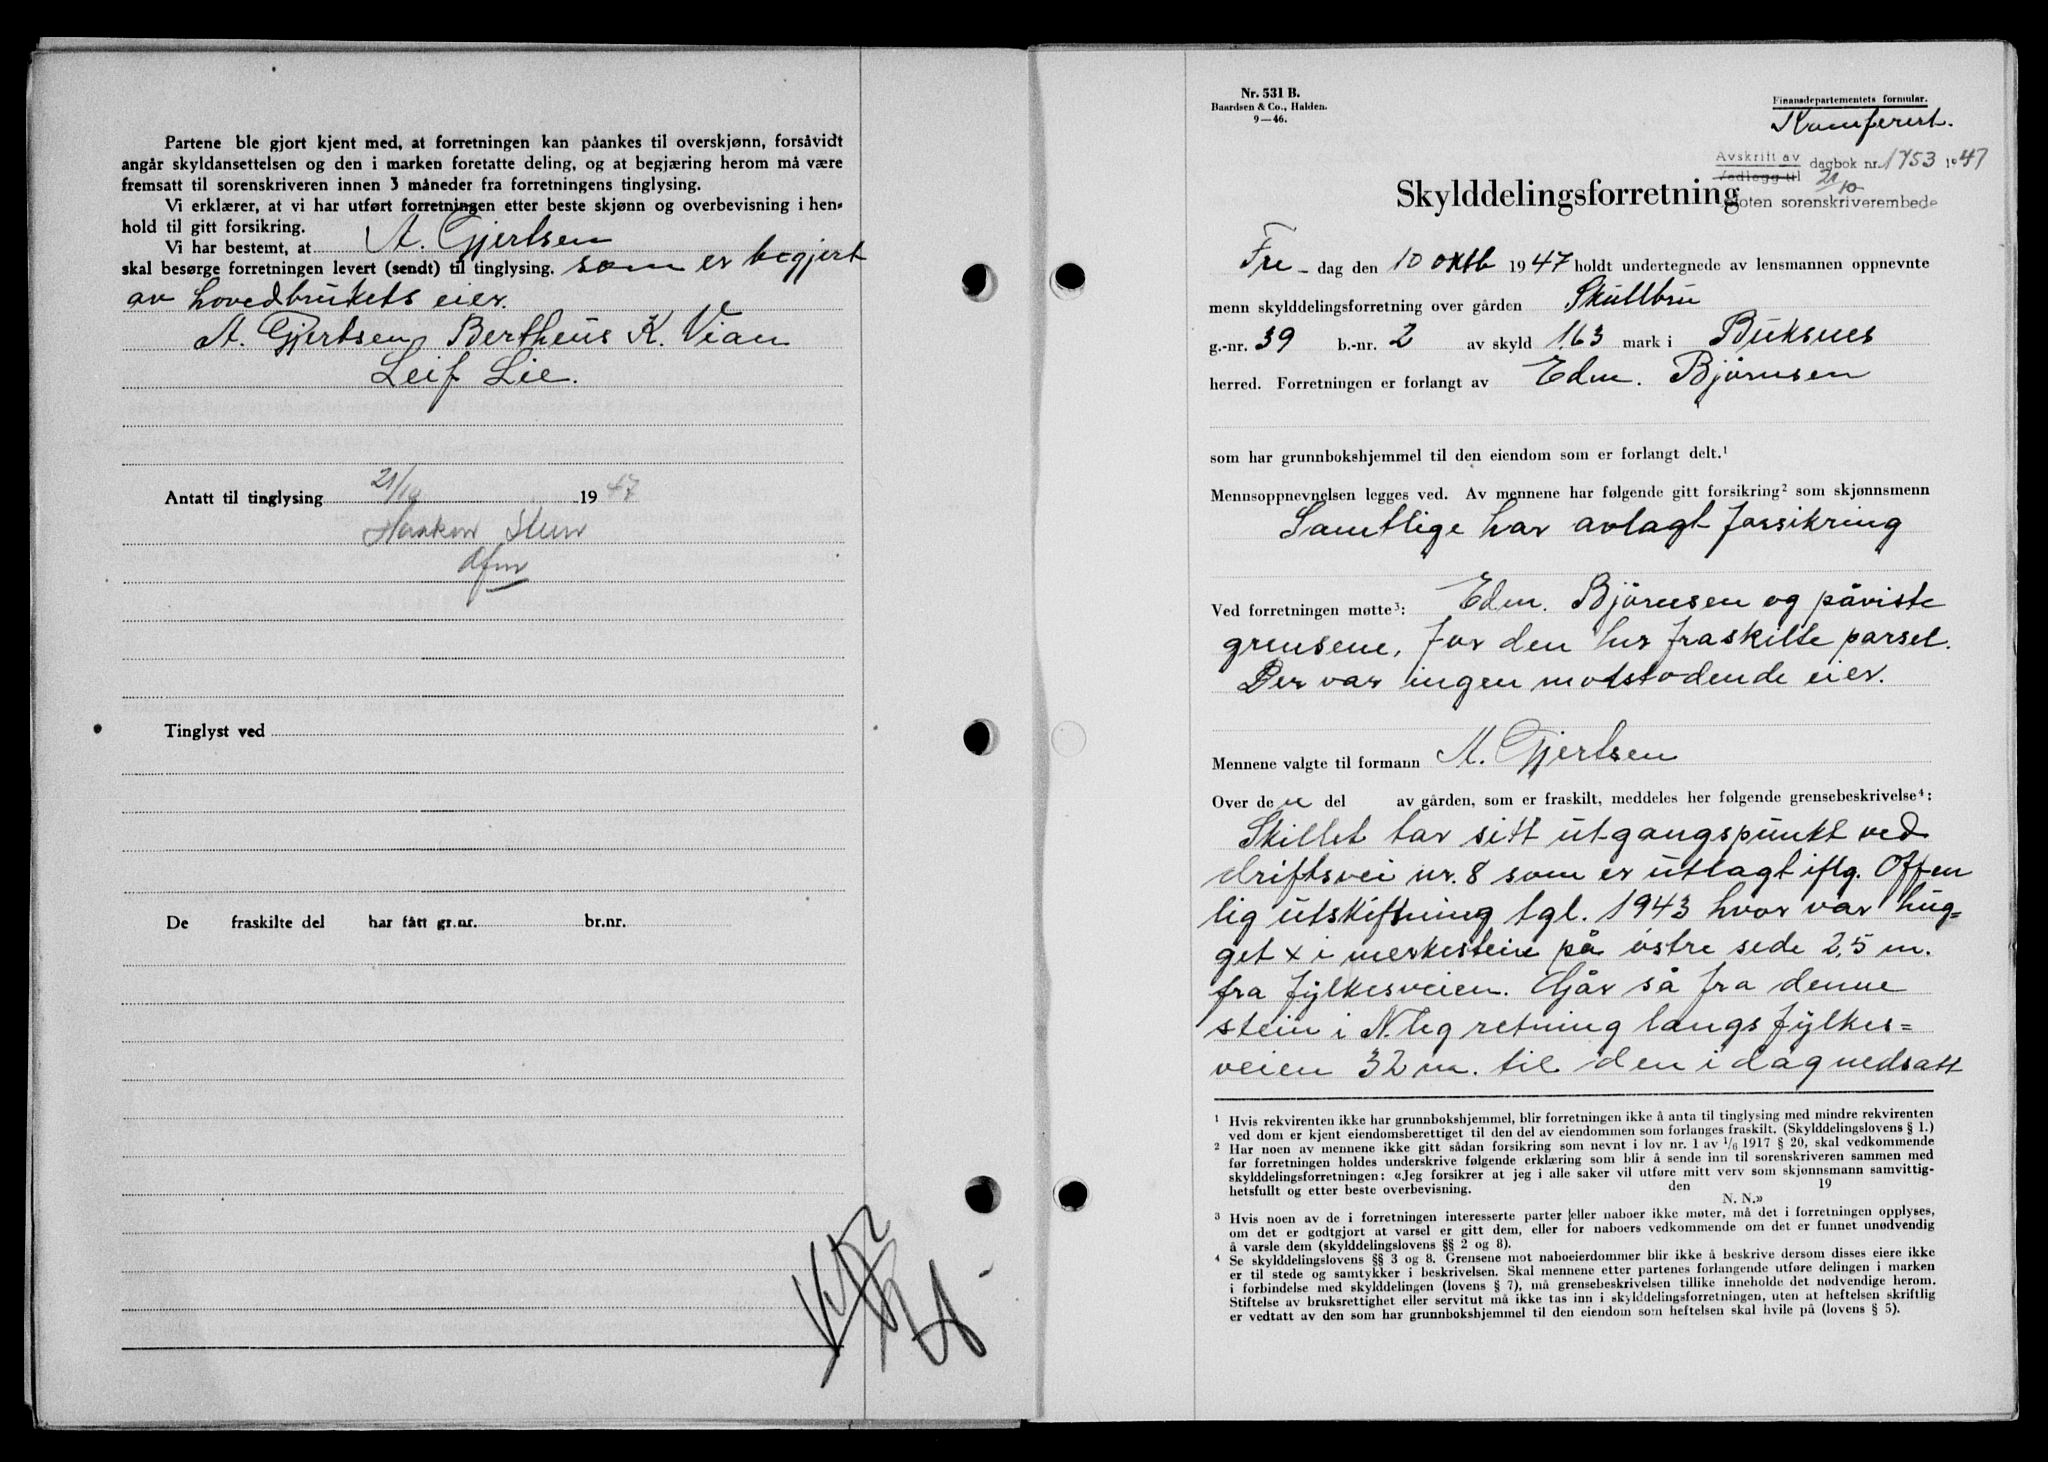 Partene ble gjort kjent med, at forretningen kan påankes til overskjønn, forsåvidt
angår skyldansettelsen og den i marken foretatte deling, og at begjæring herom må være
fremsatt til sorenskriveren innen 3 måneder fra forretningens tinglysing.
Vi erklærer, at vi har utført forretningen etter beste skjønn og overbevisning i hen-
hold til gitt forsikring.
Vi har bestemt, at A. Gjertsen
skal besørge forretningen levert (sendt) til tinglysing. som er begjert
av hovedbrukets eier.
A. Gjertsen Bertheus K. Vian
Leif Lie.
Antatt til tinglysing 21/10 1947
Tinglyst ved
De fraskilte del har fått gr.nr. br.nr.
Nr. 531 B.
Baardsen & Co., Halden.
9—46.
Finansdepartementets formular.
Avskrift av
Vedlegg til dagbok nr. 1753 1947
21/10
sorenskriverembede
Skylddelingsforretning
Fre-dag den 10 oktb 1947 holdt undertegnede av lensmannen oppnevnte
menn skylddelingsforretning over gården Skullbru
g.-nr. 39 b.-nr. 2 av skyld 1.63 mark i Buksnes
herred. Forretningen er forlangt av Edm. Bjørnsen
som har grunnbokshjemmel til den eiendom som er forlangt delt.¹
Mennsoppnevnelsen legges ved. Av mennene har følgende gitt forsikring² som skjønnsmenn
Samtlige har avlagt forsikring
Ved forretningen møtte³: Edm. Bjørnsen og påviste
grensene, for den her fraskilte parsel.
Der var ingen motstodende eier.
Mennene valgte til formann A. Gjertsen
Over de n del av gården, som er fraskilt, meddeles her følgende grensebeskrivelse⁴:
Skillet tar sitt utgangspunkt ved
driftsvei nr. 8 som er utlagt iflg. Offen
lig utskiftning tgl. 1943 hvor var hug=
get x i merkestein på østre sede 2,5 m.
fra fylkesveien. Går så fra denne
stein i N. lig retning langs fylkes=
veien 32 m. til den i dag nedsatt
¹ Hvis rekvirenten ikke har grunnbokshjemmel, blir forretningen ikke å anta til tinglysing med mindre rekvirenten
ved dom er kjent eiendomsberettiget til den del av eiendommen som forlanges fraskilt. (Skylddelingslovens § 1.)
² Har noen av mennene ikke gitt sådan forsikring som nevnt i lov nr. 1 av 1/6 1917 § 20, skal vedkommende
før forretningen holdes underskrive følgende erklæring som blir å sende inn til sorenskriveren sammen med
skylddelingsforretningen: «Jeg forsikrer at jeg i alle saker vil utføre mitt verv som skjønnsmann samvittig-
hetsfullt og etter beste overbevisning. den 19
N. N.»
³ Hvis noen av de i forretningen interesserte parter eller naboer ikke møter, må det i forretningen opplyses,
om det er godtgjort at varsel er gitt dem, eller for naboers vedkommende om det er funnet unødvendig
å varsle dem (skylddelingslovens §§ 2 og 8).
⁴ Se skylddelingslovens §§ 3 og 8. Grensene mot naboeierdommer blir ikke å beskrive dersom disses eiere ikke
er til stede og samtykker i beskrivelsen. Skal mennene etter partenes forlangende utføre delingen i marken
i forbindelse med skylddelingen (lovens § 7), må grensebeskrivelsen tillike inneholde det nødvendige herom.
Stiftelse av bruksrettighet eller servitut må ikke tas inn i skylddelingsforretningen, uten at heftelsen skriftlig
er vedtatt av den som har grunnbokshjemmel til den eiendom som heftelsen skal hvile på (lovens § 5).